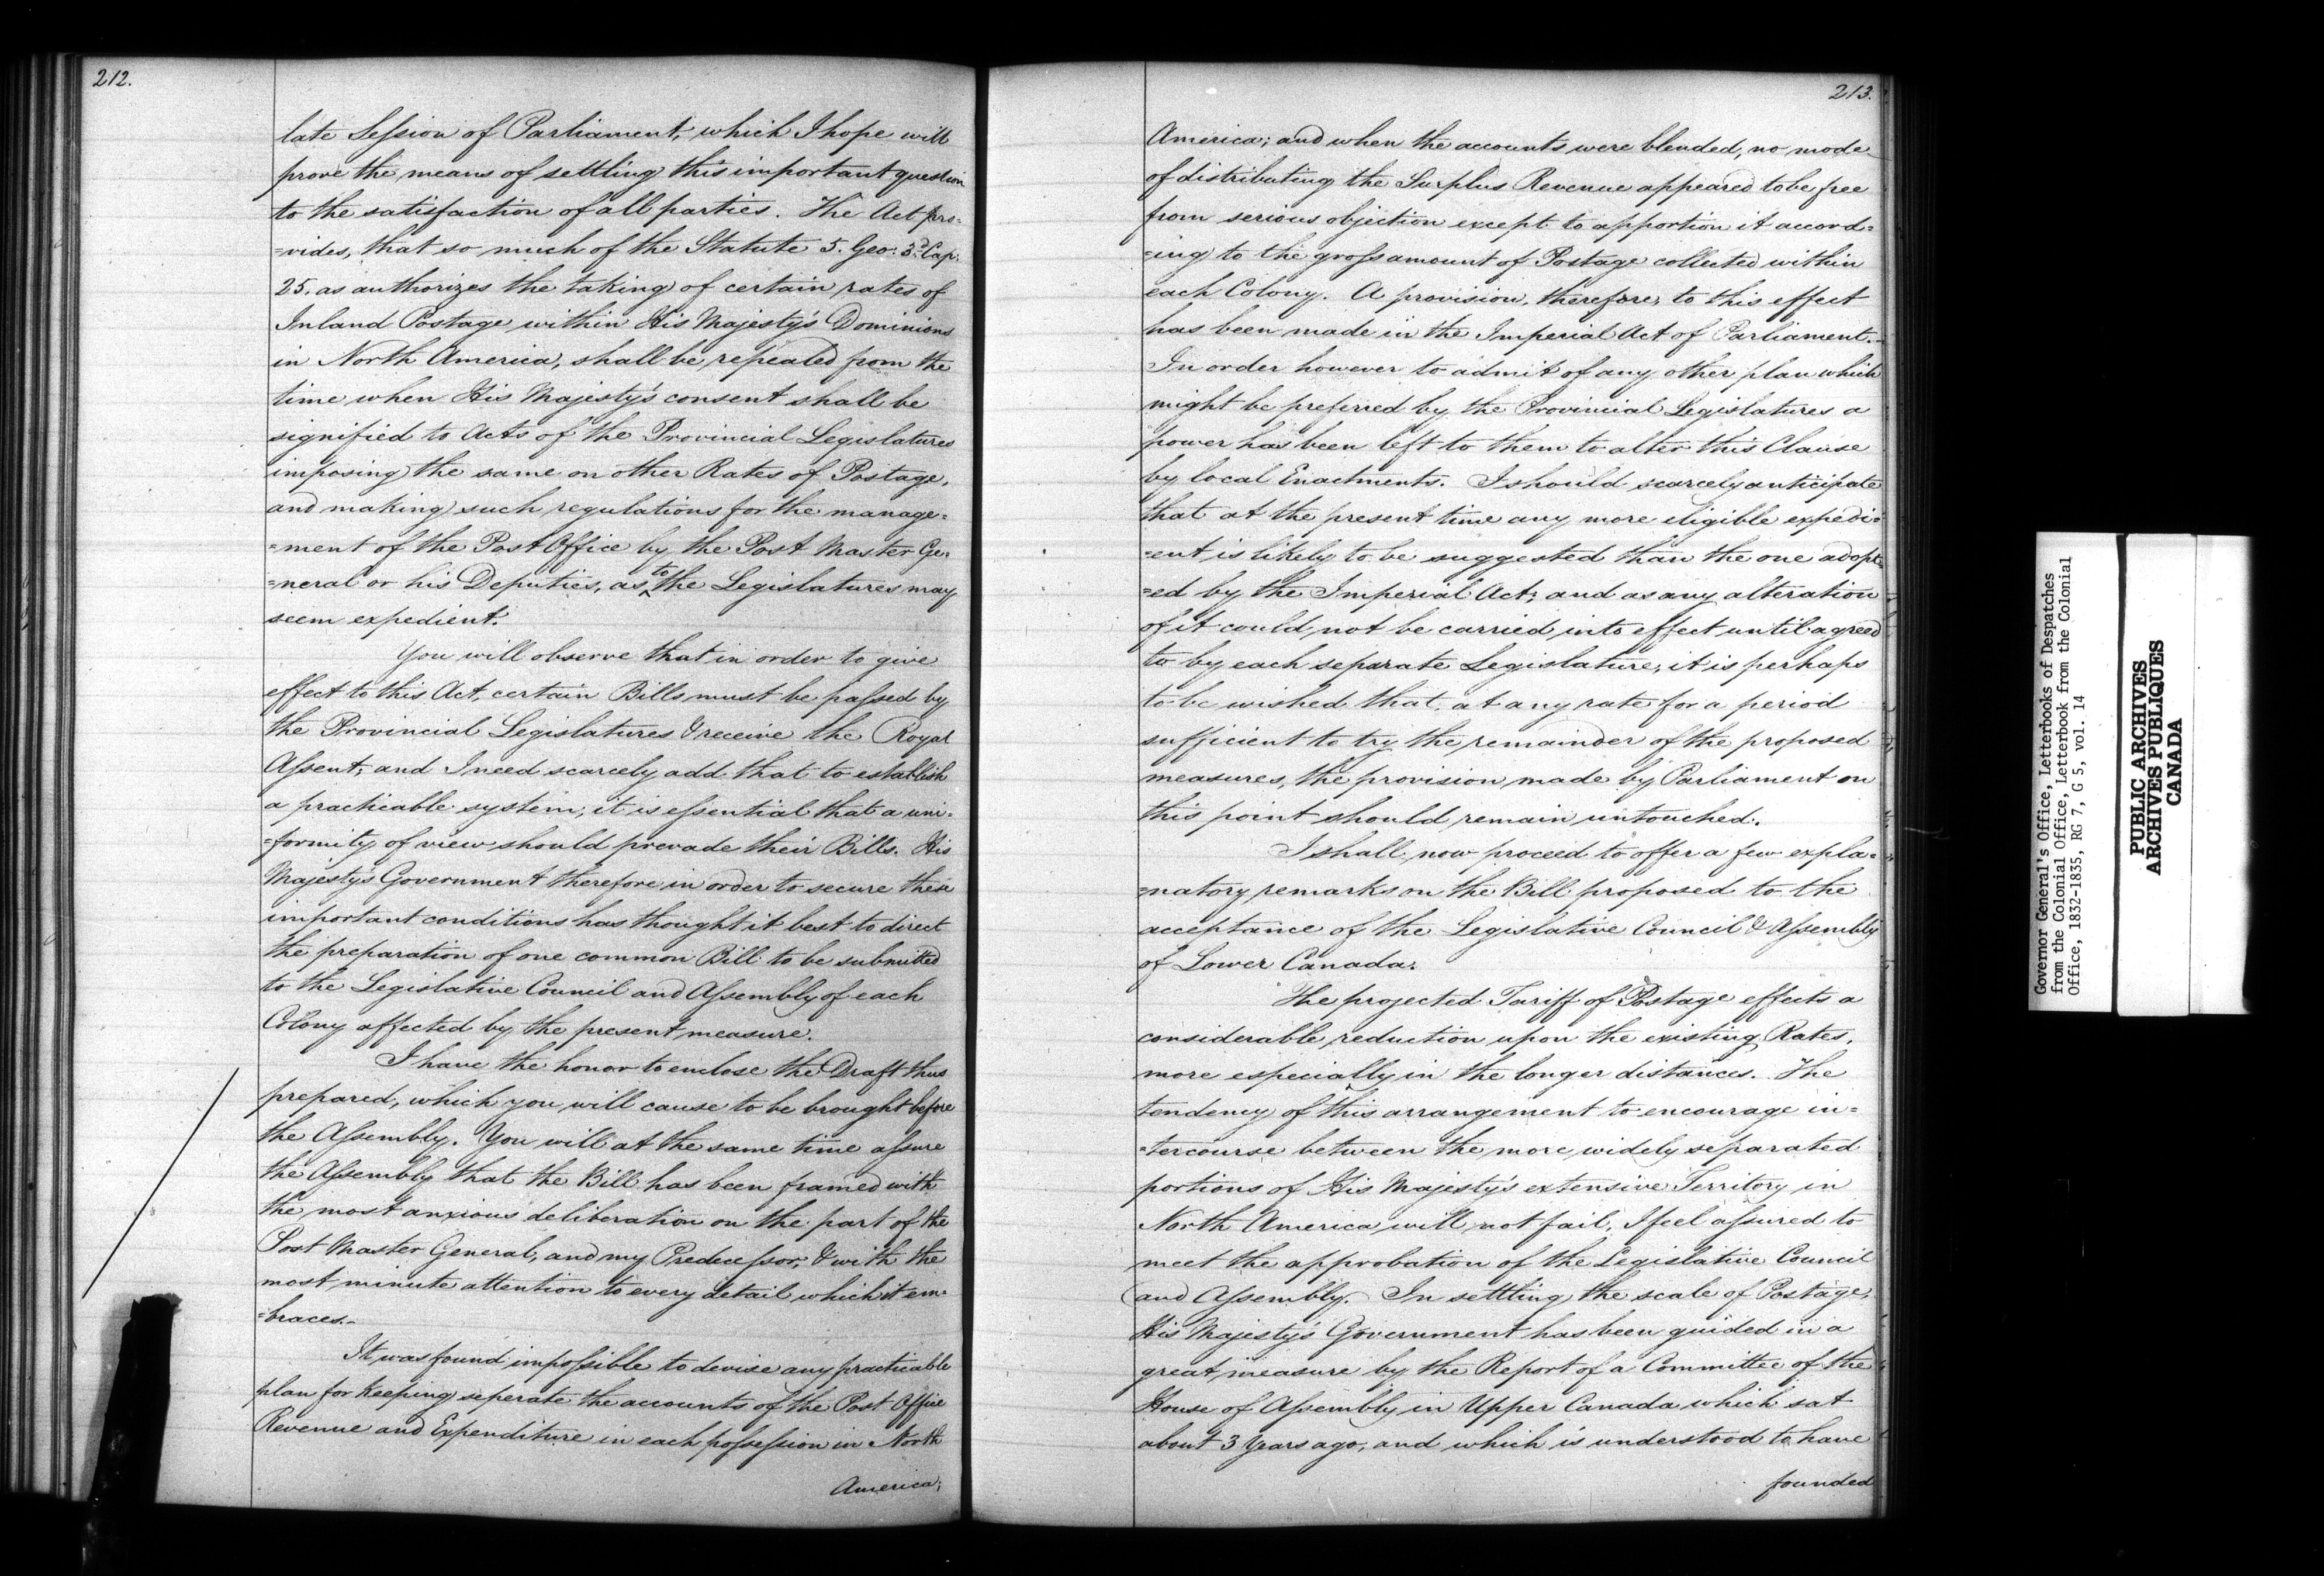 212.
late Session of Parliament, which I hope will
prove the means of settling this important question
to the satisfaction of all parties. The Act pro=
=vides, that so much of the Statute 5. Geo: 3.d Cap.
25. as authorizes the taking of certain rates of
Inland Postage within His Majesty's Dominions
in North America, shall be repealed from the
time when His Majesty's consent shall be
signified to Acts of the Provincial Legislatures
imposing the same on other Rates of Postage,
and making such regulations for the manage=
=ment of the Post Office by the Post Master Ge=
=neral or his Deputies, as to the Legislatures may
seem expedient.
You will observe that in order to give
effect to this Act, certain Bills must be passed by
the Provincial Legislatures & receive the Royal
Assent; and I need scarcely add that to establish
a practicable system, it is essential that a uni=
=formity of view should prevade their Bills. His
Majesty's Government therefore in order to secure these
important conditions has thought it best to direct
the preparation of one common Bill to be submitted
to the Legislative Council and Assembly of each
Colony affected by the present measure.
I have the honor to enclose the Draft thus
prepared, which you will cause to be brought before
the Assembly. You will at the same time assure
the Assembly that the Bill has been framed with
the most anxious deliberation on the part of the
Post Master General, and my Predecessor, & with the
most minute attention to every detail which it em=
=braces.-
It was found impossible to devise any practicable
plan for keeping seperate the accounts of the Post Office
Revenue and Expenditure in each possession in North
America;
213.
America; and when the accounts were blended, no mode
of distributing the Surplus Revenue appeared to be free
from serious objection except to apportion it accord=
=ing to the gross amount of Postage collected within
each Colony. A provision, therefore, to this effect
has been made in the Imperial Act of Parliament.-
In order however to admit of any other plan which
might be preferred by the Provincial Legislatures a
power has been left to them to alter this Clause
by local Enactments. I should scarcely anticipate
that at the present time any more eligible expedi=
=ent is likely to be suggested than the one adopt=
=ed by the Imperial Act; and as any alteration
of it could not be carried into effect until agreed
to by each separate Legislature, it is perhaps
to be wished that, at any rate for a period
sufficient to try the remainder of the proposed
measures, the provision made by Parliament on
this point should remain untouched.
I shall now proceed to offer a few expla=
=natory remarks on the Bill proposed to the
acceptance of the Legislative Council & Assembly
of Lower Canada.
The projected Tariff of Postage effects a
considerable reduction upon the existing Rates,
more especially in the longer distances. The
tendency of this arrangement to encourage in=
=tercourse between the more widely separated
portions of His Majesty's extensive Territory in
North America will not fail, I feel assured to
meet the approbation of the Legislative Council
and Assembly. In settling the scale of Postage,
His Majesty's Government has been guided in a
great measure by the Report of a Committee of the
House of Assembly in Upper Canada which sat
about 3 Years ago, and which is understood to have
founded
Governor General's Office, Letterbooks of Despatches
from the Colonial Office, Letterbook from the Colonial
Office, 1832-1835, RG 7, G 5, vol. 14
PUBLIC ARCHIVES
ARCHIVES PUBLIQUES
CANADA